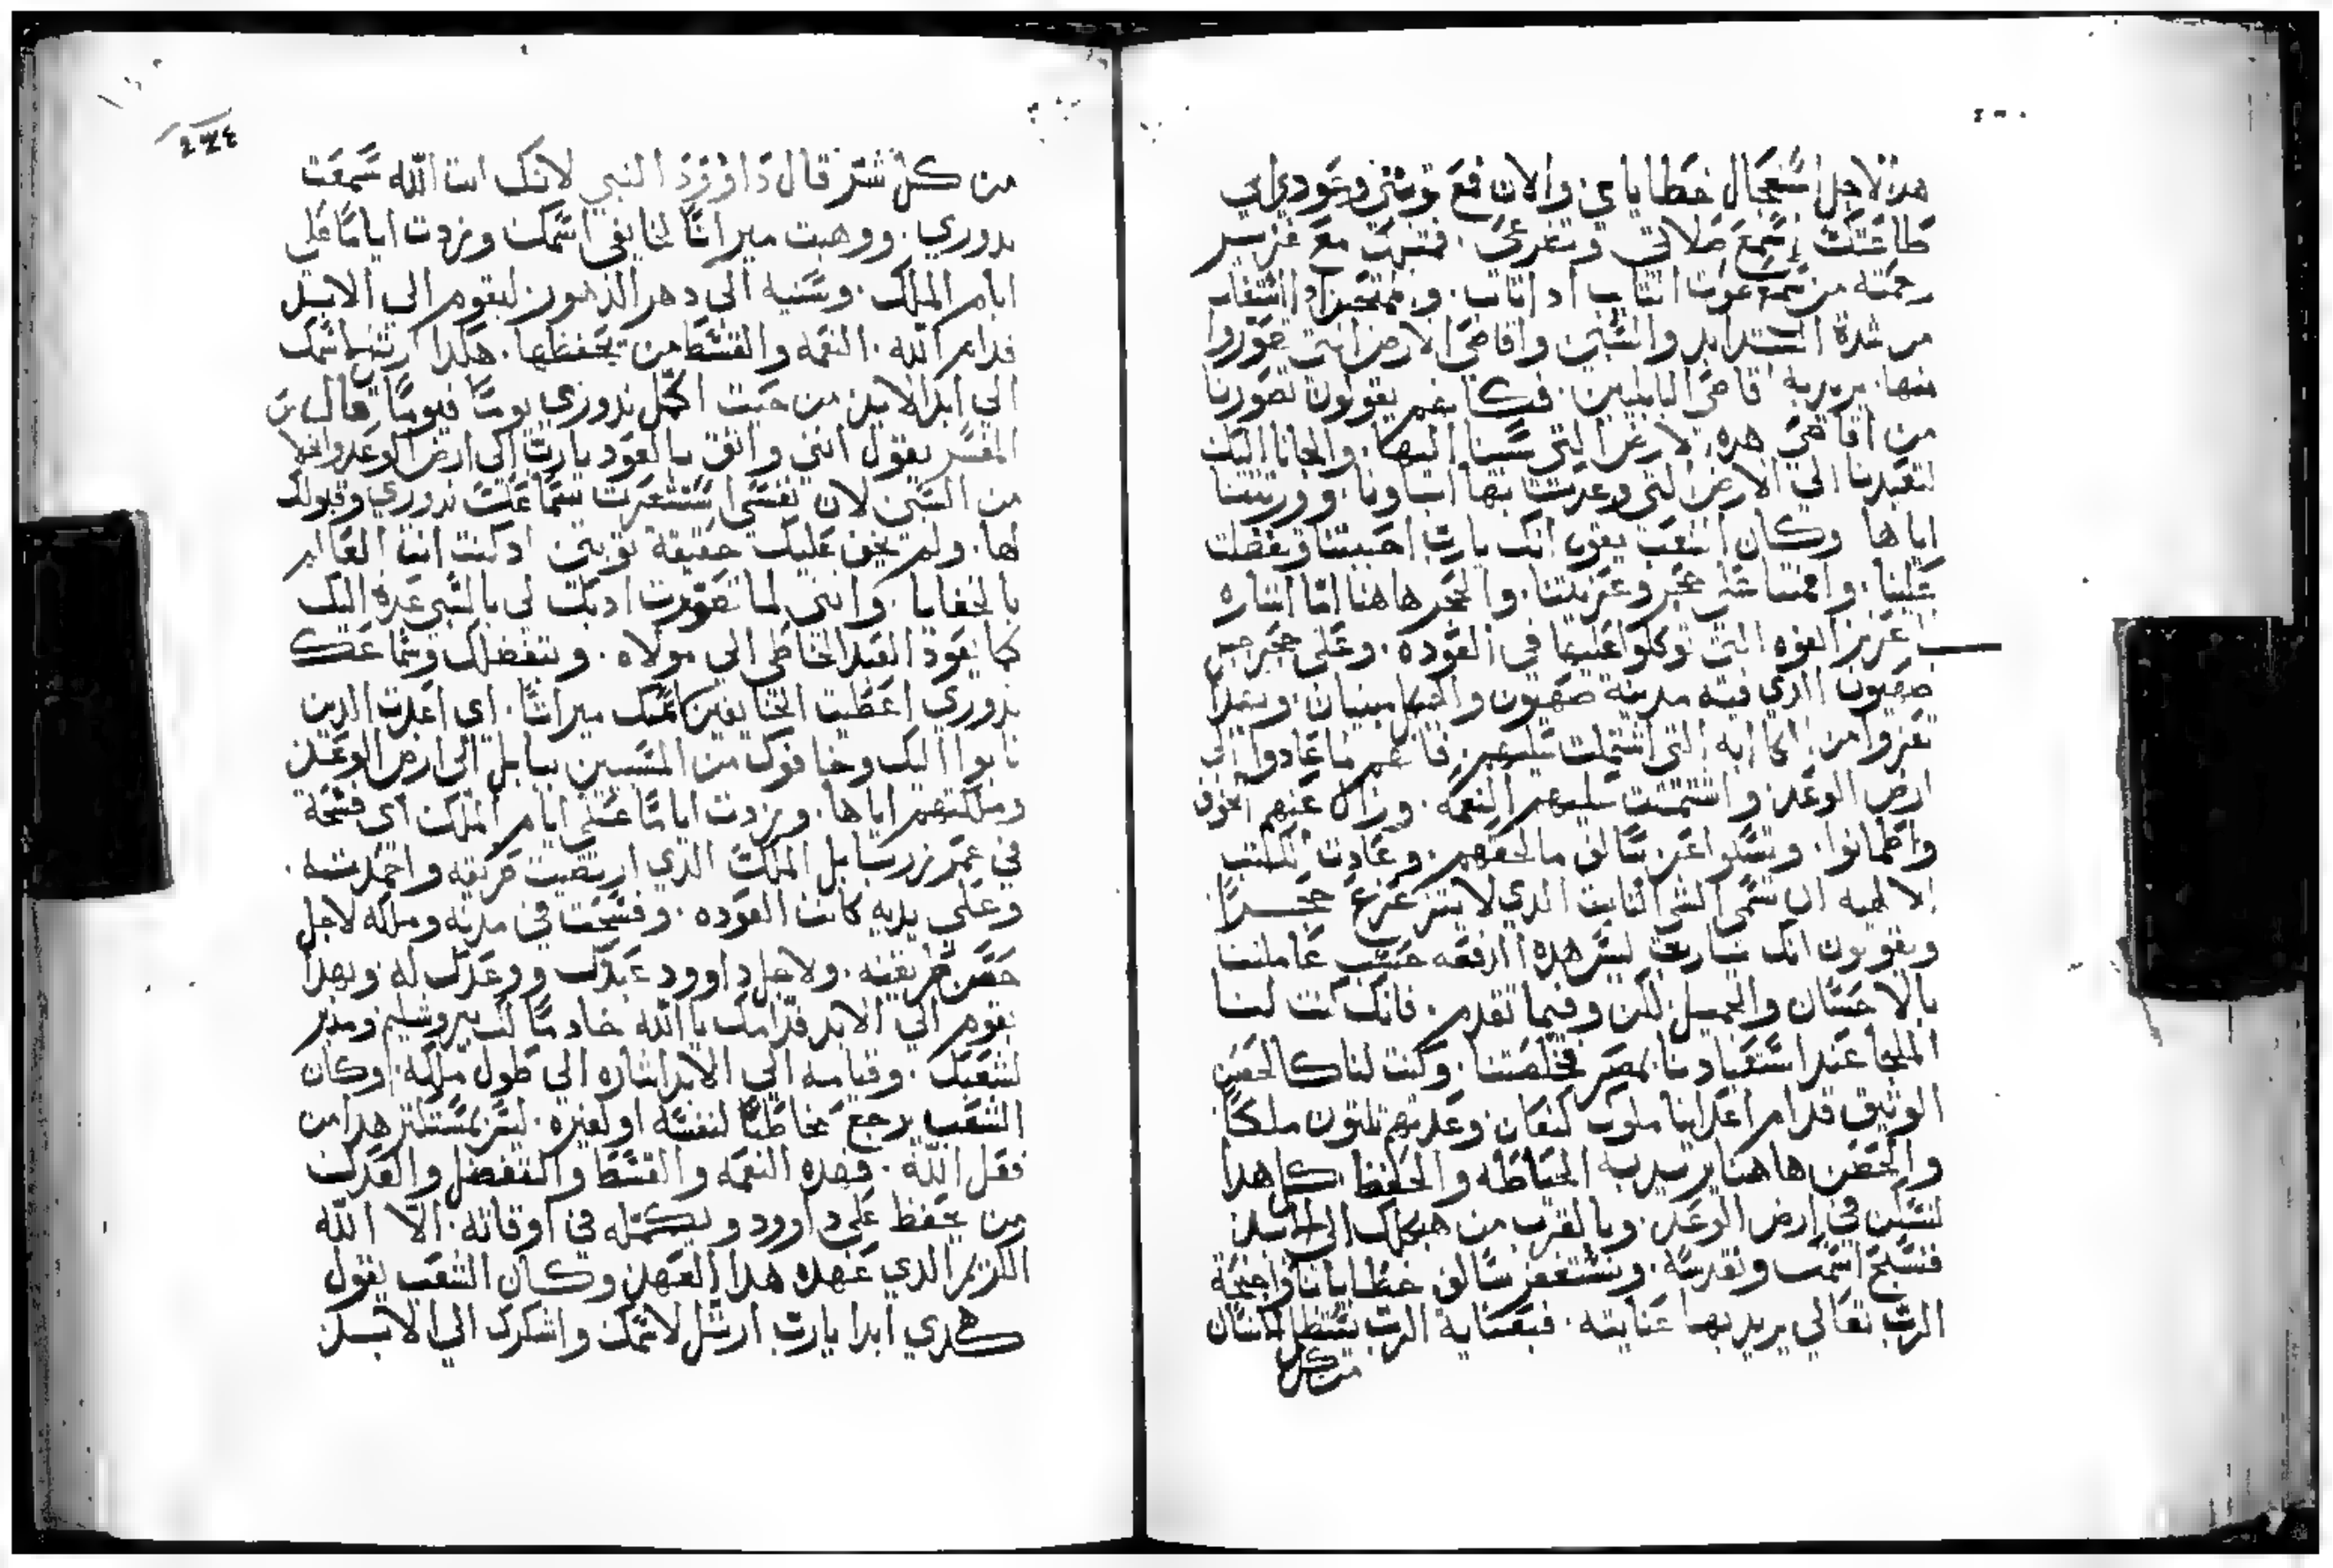 هدا لاجل استعجال خطاياي عني والان فمع توبتي وعودي الي
طاعتك إسمع صلاتي وتضرعي . فتنهت مع غزير
رحمته من سمع صوت التايب اذا تاب .
من شدة الشدايد والسبي واقاصي الارض التي
منها . يريد به اقاصي البابليين . فكانهم يقولون
من اقاصي هده الارض التي سبينا اليها . والجانا اليك
لتعيدنا الي الارض التي وعدت بها اباونا . وورثتنا
اياها وكان الشعب يقول انك يارب احببتنا وتفضلت
علينا . واقمتنا علي حجر وعزيتنا . والحجر هاهنا اما اشاره
الي عزيز القوه التي توكلوا عليها في العوده . وعلي حجر جبل
صهيون الدي فيه مدينة صهيون والهيكل مبنيان . وبهدا
تعزوا من الكاابه التي اشتملت عليهم . فانهم ما عادوا الي
ارض الوعد واشتملت عليهم النعمه . وزال عنهم الخوف
واطمانوا . وتسلوا عن سالف مالحقهم . وعادت الكتب
الالهيه ان تسمي الشي الثابت الدي لا يتزعزع حجرًا
ويقولون انك يارب ليس هده الدفعه حسب عاملتنا
بالاحسان والجميل لكن وفيما تقدم . فانك كنت لنا
الملجا عند استعبادنا بمصر فخلصتنا . وكنت لنا كالحصن
الوثيق قدام اعداينا ملوك كنعان وعدتهم تلتون ملكًا
والحصن هاهنا يريد به الحياطه والحفظ كل هدا
لنسكن في ارض الوعد . وبالقرب من هيكلك الي الابد
فنسبح اسمك ونقدسه . ونستغفر سالف خطايانا واجبحة
الرب تعالي يريد بها عنايته . فبعناية الرب يستظل الانسان
من كل
٢٣٤
من كل شر قال داوود النبي لانك انت الله سمعت
ندوري . ووهبت ميراثا لخايفي اسمك وزدت ايامًا علي
ايام الملك . وسنيه الي دهر الدهور . ليقوم الي الابد
قدام الله . النعمه والقسط من يحفظها . هكدا ارتل لاسمك
الي ابد الابد من حيث اكمل ندوري يومًا فيومًا قال
المفسر يقول انني واثق بالعود يارب الي ارض الوعد والخلاص
من السبي لان نفسي استشعرت سماعك ندوري وقبولك
لها . ولم يخف عليك حقيقة توبتي ادكنت انت العالم
بالخفايا . وانني لما تضورت ادبت لي بالسبي عدت اليك
كما يعود العبد الخاطي الي مولاه . وبتفضلك وسماعك
ندوري اعطيت الخايفين اسمك ميراثا . اي اعدت الدين
تابوا اليك وخافوك من السبي ببابل الي ارض الوعد
وملكتهم اياها . وزدت ايامًا علي ايام الملك اي فسحة
في عمر زربابل الملك الدي ارتضيت طريقه واحمدته .
وعلي يديه كانت العوده . وفسحت في مدته وملكه لاجل
حسن طريقته . ولاجل داوود عبدك ووعدك له وبهدا
يقوم الي الابد قدامك ياالله خادمًا لبيت يروشليم ومدبر
لشعبك . وقيامه الي الابد اشاره الي طول ملكه . وكان
الشعب يرجع مخاطبًا لنفسه او لغيره . ليس بمستكتر هدا من
فعل الله . فهده النعمه والقسط والتفضل والعدل
من يحفظ علي داوود ويكمله في اوقاته . الا الله
الكريم الدي عهد هدا العهد وكان الشعب يقول
هكدي ابدا يارب ارتل لاسمك واشكرك الي الابد